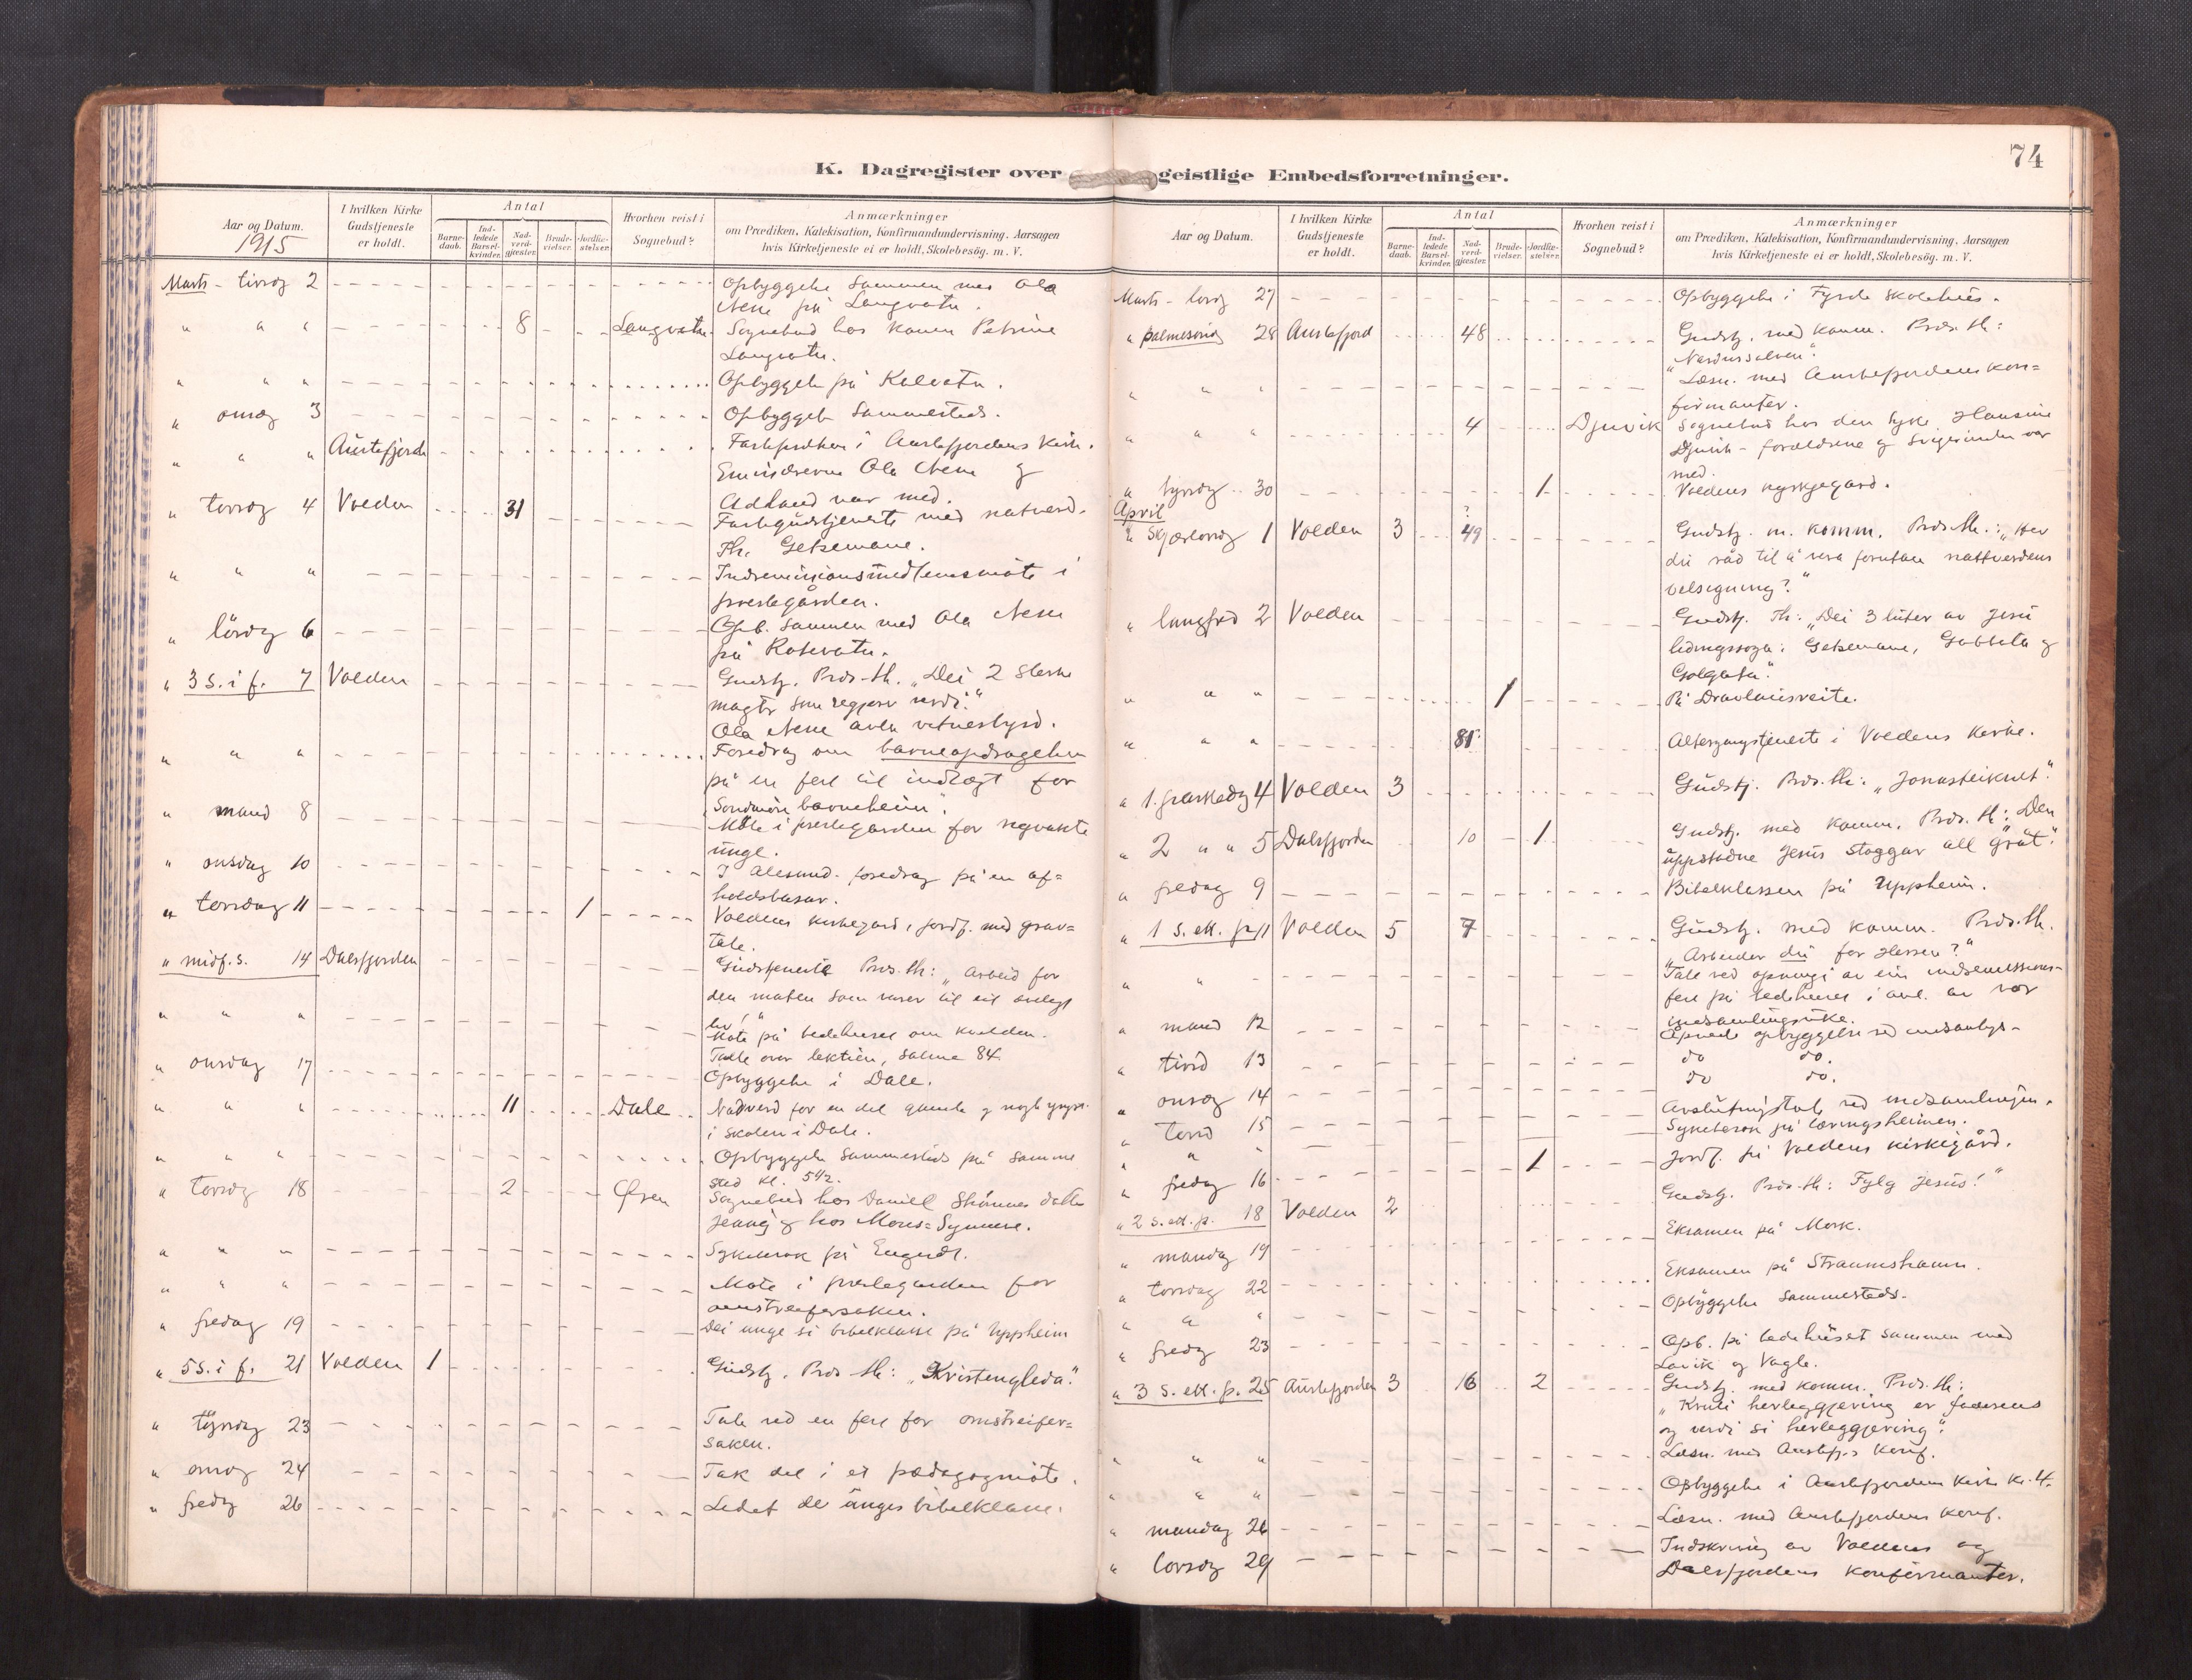 74
K. Dagregister over geistlige Embedsforretninger.
Aar og Datum.
1915
I hvilken Kirke Gudstjeneste er holdt.
Antal
Barne-daab.
Ind-ledede Barsel-kvinder.
Nad-verd-gjæster.
Brude-vielser.
Jordfæ-stelser.
Hvorhen reist i Sognebud?
Anmærkninger
om Prædiken, Katekisation, Konfirmandundervisning, Aarsagen
hvis Kirketjeneste ei er holdt, Skolebesög. m. V.
Marts - tirsdag 2 Opbyggelse sammen med Ola
Nene på Langvatn.
" " " 8 Langvatn. Sognebud hos konen Petrine
Langvatn.
" " " Opbyggelse på Kalvatn.
" onsdag 3 Opbyggelse sammesteds.
" " " Austefjorden Fastepræken i Austefjordens kirke.
Emisærerne Ola Nene og
Adland var med.
" torsdag 4 Volden 31 Fastegudstjeneste med natverd.
Th. Getsemane.
" " " Indremisionsmedlemsmöte i
prestegården.
" lördag 6 Opb. sammen med Ola Nene
på Rotevatn.
" 3 S. i f. 7 Volden Gudstj. Præs. th. "Dei 2 sterke
magter som regjerer verdi."
Ola Nene avla vitnesbyrd.
" " " Foredrag om barneopdragelsen
på en fest til indtægt for
"Söndmöre barneheim".
" mand 8 Möte i prestegarden for nyvakte
unge.
" onsdag 10 I Ålesund. foredrag på en af=
holdsbasar.
" torsdag 11 1 Voldens kirkegard, jordf. med grav=
tale.
" midf. S. 14 Dalsfjorden Gudstjeneste Præs. th: "Arbeid for
den maten som varer til eit ævelegt
liv!"
" " " Möte på bedehuset om kvelden.
Talte over lektien, salme 84.
" onsdag 17 Opbyggelse i Dale.
" " " 11 Dale Nadverd for en del gamle og nogle yngre
i skolen i Dale.
" " " Opbyggelse sammesteds på samme
sted kl. 5 1/2.
" torsdag 18 2 Ørsen Sognebud hos Daniel Skinnes datter
Jenny og hos Mons=Synnöve.
" " " Sykebesøk på Engeset.
" " " Möte i prestegarden for
omstreifersaken.
" fredag 19 Dei unge si bibelklasse på Uppheim
" 5 S. i f. 21 Volden 1 Gudstj. Præs th: "Kristengleda."
" tysdag 23 Tale ved en fest for omstreifer=
saken.
" onsdag 24 Tok del i et pædagogmöte.
" fredag 26 Ledet de unges bibelklasse.
Aar og Datum.
I hvilken Kirke Gudstjeneste er holdt.
Antal
Barne-daab.
Ind-ledede Barsel-kvinder.
Nad-verd-gjæster.
Brude-vielser.
Jordfæ-stelser.
Hvorhen reist i Sognebud?
Anmærkninger
om Prædiken, Katekisation, Konfirmandundervisning, Aarsagen
hvis Kirketjeneste ei er holdt, Skolebesög. m. V.
Marts - lørdag 27 Opbyggelse i Fyrde skolehus.
" palmesönd 28 Austefjord 48 Gudstj. med komm. Præs. th:
"Nardussalven".
" " " Læsn. med Austefjordens kon=
firmanter.
" " " 4 Djuvik Sognebud hos den syke Hansine
Djuvik - forældrene og svigerinden var
med.
" tysdag 30 1 Voldens kyrkjegard.
April
" Skjærtorsdag 1 Volden 3 ? 49 Gudstj. m. komm. Præs. th.: "Har
du råd til å vera forutan nattverdens
velsigning?"
" langfred 2 Volden Gudstj. Th: "Dei 3 luter av Jesu
lidingssoga: Getsemane, Gabbata og
Golgata".
" " " 1 På Dravlausveite.
" " " 81 Altergangstjeneste i Voldens kirke.
" 1. paaskedag 4 Volden 3 Gudstj. Præs. th: "Jonasteiknet".
" 2 " " 5 Dalsfjorden 10 1 Gudstj. med komm. Præs. th: "Den
uppstadne Jesus stoggar all gråt".
" fredag 9 Bibelklassen på Uppheim.
" 1 S. ett. p. 11 Volden 5 7 Gudstj. med komm. Præs. th.
"Arbeider du for Herren?"
" " Tale ved opningi av ein indremissions-
fest på bedehuset i anl. av vor
indsamlingsuke.
" mand 12 Åpnede opbyggelse ved indsamlgs-
" tirsd 13 do do.
" onsdag 14 do do.
" torsd 15 Avslutningstale ved indsamlingen.
" " " Sykebesøk på læringsheimen.
" fredag 16 1 Jordf. på Voldens kirkegård.
" 2 S. ett. p. 18 Volden 2 Gudstj. Præs. th: Fylg Jesus!"
" mandag 19 Eksamen på Mork.
" torsdag 22 Eksamen på Straumshamn.
" " " Opbyggelse sammesteds.
" fredag 23 Opb. på bedehuset sammen med
Lavik og Vagle.
" 3 S. ett. p. 25 Austefjorden 3 16 2 Gudstj. med komm. Præs. th:
"Kristi herleggjering er faderens
og verdi si herleggjering".
" " " Læsn. med Austefj.s konf.
" " " Opbyggelse i Austefjordens kirke kl. 4.
" mandag 26 Læsn. med Austefjordens konf.
" torsdag 29 Indskriving av Voldens og
Dalsfjordens konfirmanter.